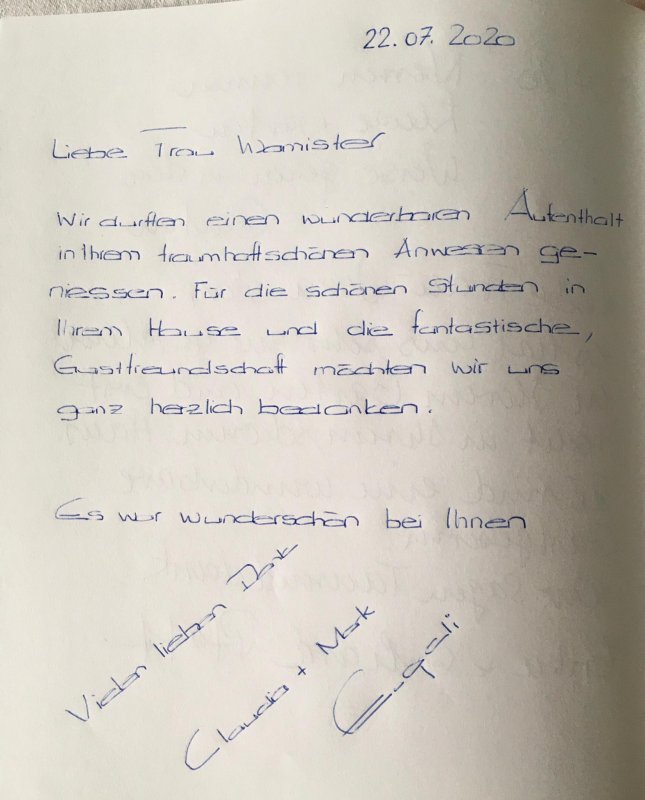 22.07.2020
Liebe Frau Wamister
Wir durften einen wunderbaren Aufenthalt
in Ihrem traumhaftschönen Anwesen ge-
niessen. Für die schönen Stunden in
Ihrem Hause und die fantastische,
Gastfreundschaft möchten wir uns
ganz herzlich bedanken.
Es war wunderschön bei Ihnen
Vielen lieben Dank
Claudia + Mark